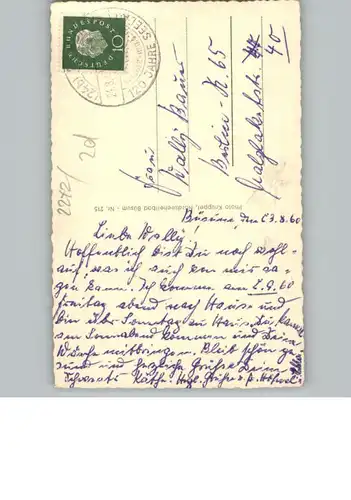 DEUTSCHE BUNDESPOST
10
120 JAHRE
(24b)
2212/
2d
Frau
Wally Baum
Berlin-N. 65
40
Photo Knüppel, Nordseeheilbad Büsum - Nr. 215
Büsum, den 23.8.60
Liebe Wally!
Hoffentlich bist Du noch wohl-
auf, was ich auch von mir sa-
gen kann. Ich komme am 2.9.60
Freitag abend nach Hause und
bin über Sonntag zu Haus. Du kannst
am Sonnabend kommen und Deine
Wäsche mitbringen. Bleib schön ge-
sund und herzliche Grüße Deine
Käthe. Herzl. Grüße